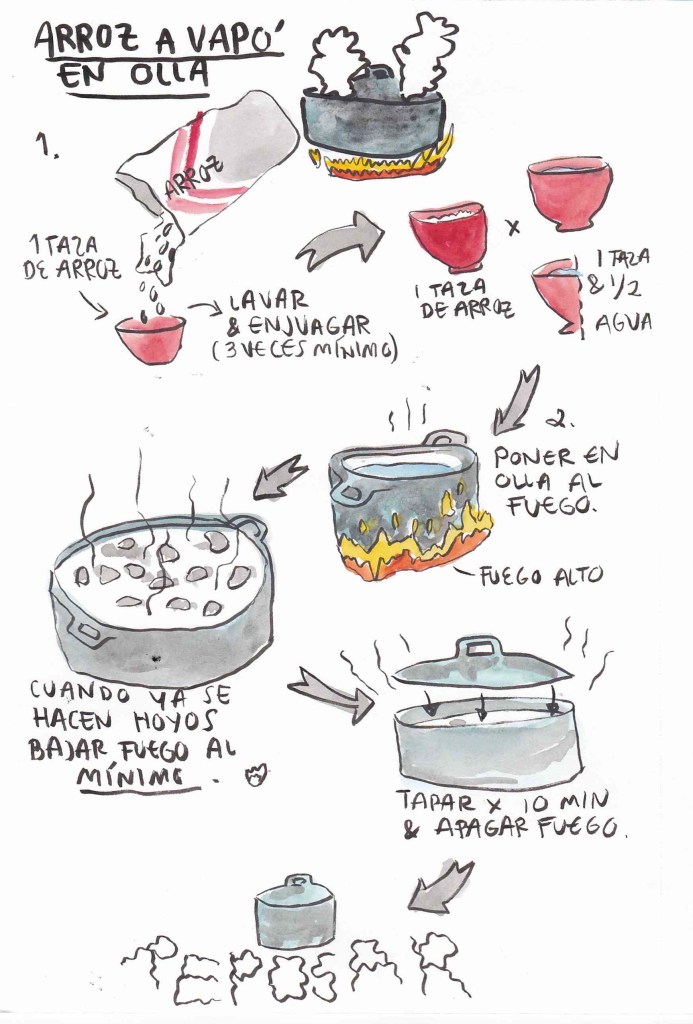 ARROZ A VAPO'
EN OLLA
1.
ARROZ
1 TAZA
DE ARROZ
LAVAR
& ENJUAGAR
(3 VECES MÍNIMO)
1 TAZA
DE ARROZ
x
1 TAZA
& 1/2
AGUA
2.
PONER EN
OLLA AL
FUEGO.
FUEGO ALTO
CUANDO YA SE
HACEN HOYOS
BAJAR FUEGO AL
MÍNIMO.
TAPAR x 10 MIN
& APAGAR FUEGO.
REPOSAR